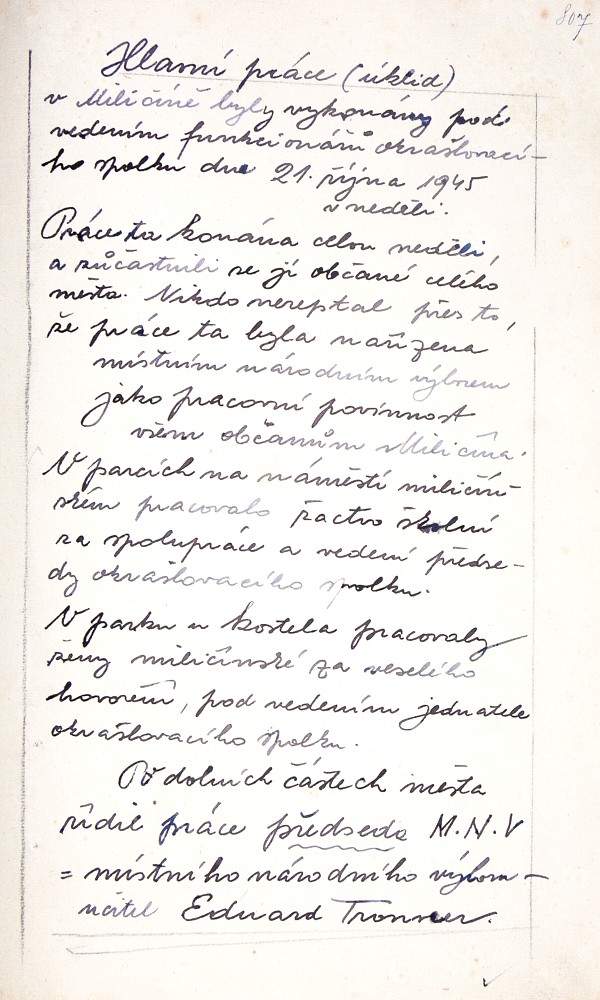 807
Hlavní práce (úklid)
v Miličíně byly vykonány pod
vedením funkcionářů okrašlovací-
ho spolku dne 21. října 1945
v neděli.
Práce ta konána celou neděli,
a zůčastnili se jí občané celého
města. Nikdo nereptal přes to,
že práce ta byla nařízena
místním národním výborem
jako pracovní povinnost
všem občanům Miličína.
V parcích na náměstí miličín-
ském pracovalo žactvo školní
za spolupráce a vedení předse-
dy okrašlovacího spolku.
V parku u kostela pracovaly
ženy miličínské za veselého
hovoření, pod vedením jednatele
okrašlovacího spolku.
Po dolních částech města
řídil práce předseda M.N.V
= místního národního výboru -
učitel Eduard Tronner.